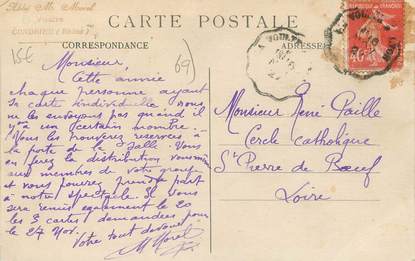 Abbé M. Morel
Vicaire
CONDRIEU (Rhône)
CARTE POSTALE
CORRESPONDANCE
ADRESSE
15€
69
LA VOULTE
RÉPUBLIQUE FRANÇAISE
40
Monsieur,
Cette année
chaque personne ayant
sa carte individuelle nous
ne les envoyons quand il
y a un certain nombre.
Vous les trouverez réservées à
la porte de la Salle. Vous
en ferez la distribution vous-même
aux membres de votre groupe
et vous pourrez prendre part
à notre spectacle. Il vous
sera remis également le 20
les 3 cartes demandées pour
le 27 Nov.
Votre tout dévoué
M Morel
Monsieur René Paille
Cercle catholique
St Pierre de Bœuf
Loire